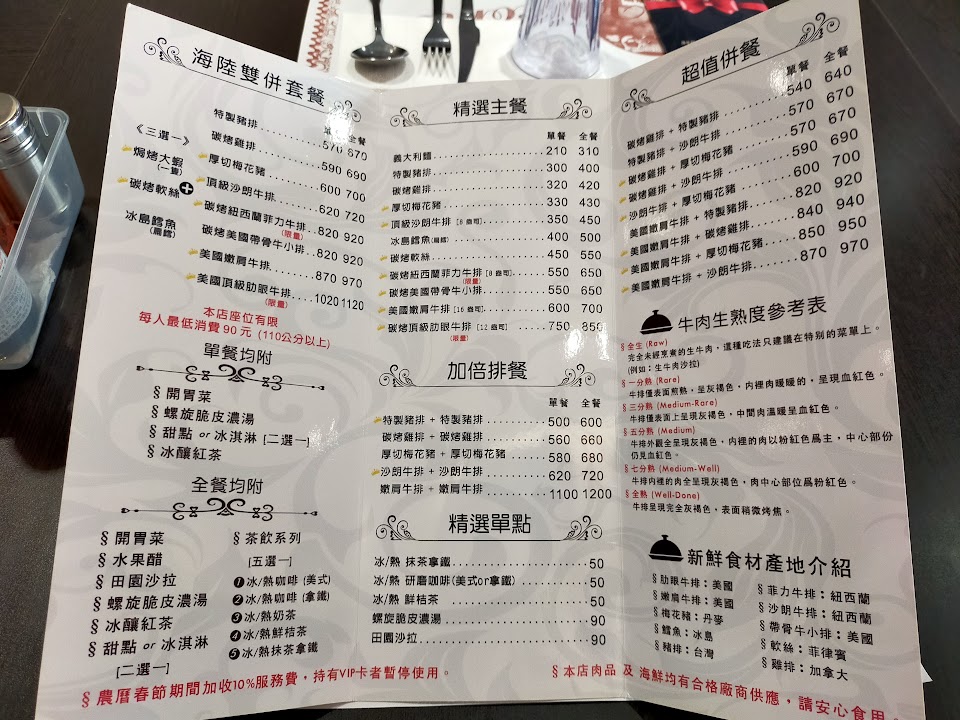 海陸雙併套餐
單餐 全餐
《三選一》
焗烤大蝦
(一隻)
碳烤軟絲
冰島鱈魚
(扁鱈)
特製豬排 570 670
碳烤雞排 590 690
厚切梅花豬 600 700
頂級沙朗牛排 620 720
碳烤紐西蘭菲力牛排 820 920
(限量)
碳烤美國帶骨牛小排 820 920
美國嫩肩牛排 870 970
美國頂級肋眼牛排 1020 1120
(限量)
本店座位有限
每人最低消費90元 (110公分以上)
單餐均附
§ 開胃菜
§ 螺旋脆皮濃湯
§ 甜點 or 冰淇淋 [二選一]
§ 冰釀紅茶
全餐均附
§ 開胃菜
§ 水果醋
§ 田園沙拉
§ 螺旋脆皮濃湯
§ 冰釀紅茶
§ 甜點 or 冰淇淋
[二選一]
§ 茶飲系列
[五選一]
❶ 冰/熱咖啡 (美式)
❷ 冰/熱咖啡 (拿鐵)
❸ 冰/熱奶茶
❹ 冰/熱鮮桔茶
❺ 冰/熱抹茶拿鐵
§ 農曆春節期間加收10%服務費,持有VIP卡者暫停使用。
精選主餐
單餐 全餐
義大利麵 210 310
特製豬排 300 400
碳烤雞排 320 420
厚切梅花豬 330 430
頂級沙朗牛排 [6盎司] 350 450
冰島鱈魚(扁鱈) 400 500
碳烤軟絲 450 550
碳烤紐西蘭菲力牛排 [8盎司] 550 650
(限量)
碳烤美國帶骨牛小排 550 650
美國嫩肩牛排 [16盎司] 600 700
碳烤頂級肋眼牛排 [12盎司] 750 850
(限量)
加倍排餐
單餐 全餐
特製豬排 + 特製豬排 500 600
碳烤雞排 + 碳烤雞排 560 660
厚切梅花豬 + 厚切梅花豬 580 680
沙朗牛排 + 沙朗牛排 620 720
嫩肩牛排 + 嫩肩牛排 1100 1200
精選單點
冰/熱 抹茶拿鐵 50
冰/熱 研磨咖啡(美式or拿鐵) 50
冰/熱 鮮桔茶 50
螺旋脆皮濃湯 90
田園沙拉 90
超值併餐
單餐 全餐
碳烤雞排 + 特製豬排 540 640
特製豬排 + 沙朗牛排 570 670
碳烤雞排 + 厚切梅花豬 570 670
碳烤雞排 + 沙朗牛排 590 690
沙朗牛排 + 厚切梅花豬 600 700
美國嫩肩牛排 + 特製豬排 820 920
美國嫩肩牛排 + 碳烤雞排 840 940
美國嫩肩牛排 + 厚切梅花豬 850 950
美國嫩肩牛排 + 沙朗牛排 870 970
牛肉生熟度參考表
§ 全生 (Raw)
完全未經烹煮的生牛肉,這種吃法只建議在特別的菜單上。
(例如:生牛肉沙拉)
§ 一分熟 (Rare)
牛排僅表面煎熟,呈灰褐色,內裡肉暖暖的,呈現血紅色。
§ 三分熟 (Medium-Rare)
牛排僅表面上呈現灰褐色,中間肉溫暖呈血紅色。
§ 五分熟 (Medium)
牛排外觀全呈現灰褐色,內裡的肉以粉紅色為主,中心部份
仍見血紅色。
§ 七分熟 (Medium-Well)
牛排內裡的肉全呈現灰褐色,肉中心部位為粉紅色。
§ 全熟 (Well-Done)
牛排呈現完全灰褐色,表面稍微烤焦。
新鮮食材產地介紹
§ 肋眼牛排:美國
§ 嫩肩牛排:美國
§ 梅花豬:丹麥
§ 鱈魚:冰島
§ 豬排:台灣
§ 菲力牛排:紐西蘭
§ 沙朗牛排:紐西蘭
§ 帶骨牛小排:美國
§ 軟絲:菲律賓
§ 雞排:加拿大
§ 本店肉品 及 海鮮均有合格廠商供應,請安心食用